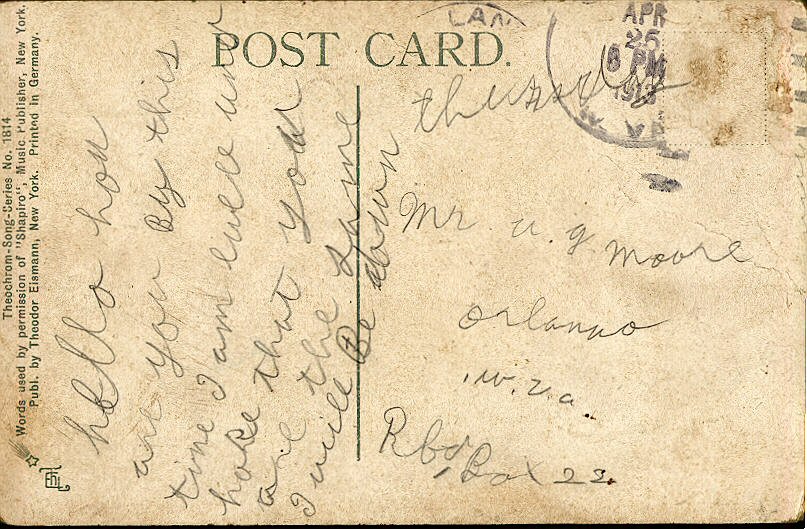 Theochrom-Song-Ceries No. 1814
Words used by permission of "Shapiro", Music Publisher, New York.
Publ. by Theodor Eismann, New York. Printed in Germany.
POST CARD.
LAN
APR
25
8 PM
hello how
are you By this
time I am well and
hope that your
are the same
I will Be down
thursday
Mr u. g. moore
orlando
w.v.a.
Box 23.